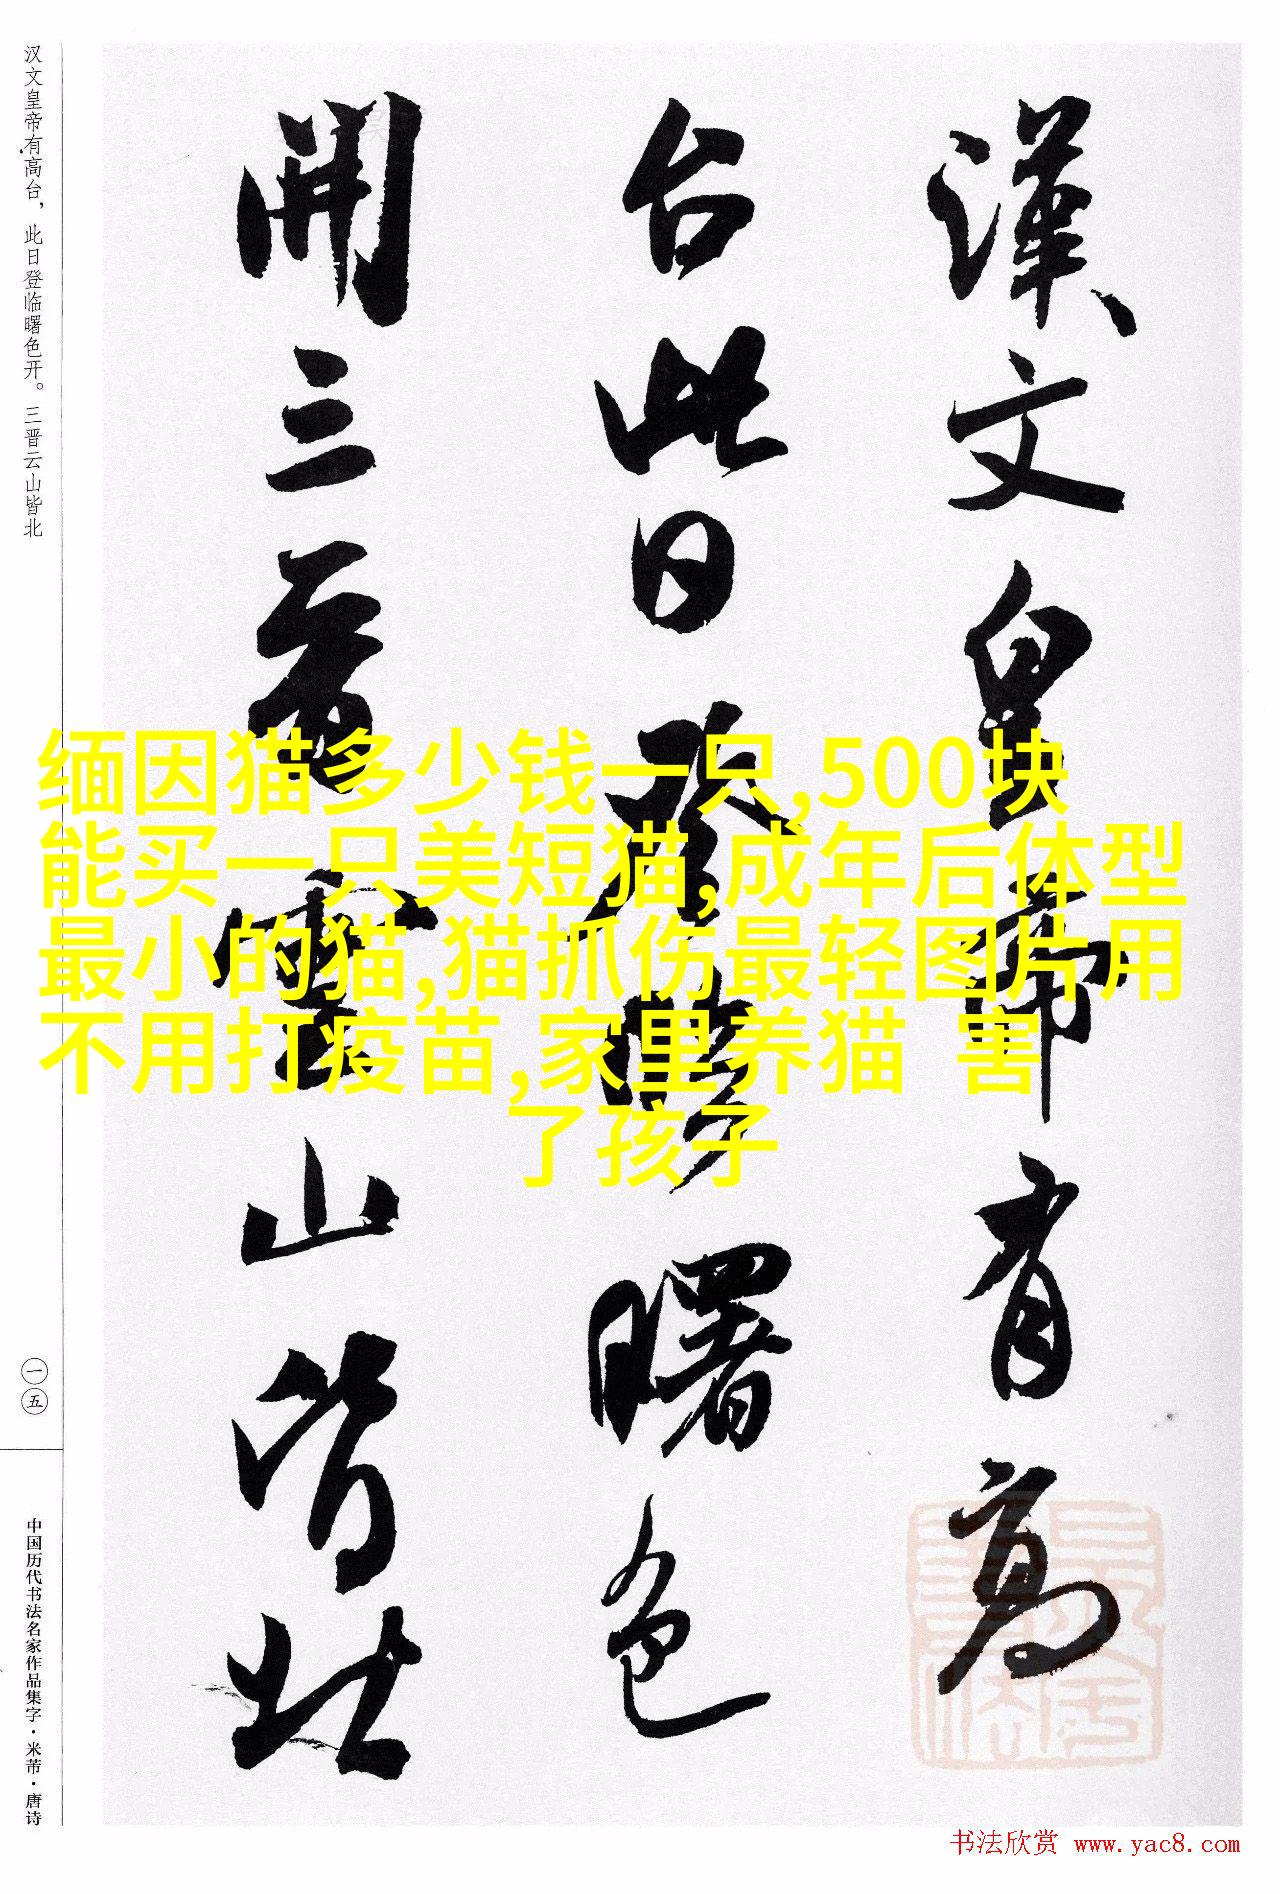 漢文皇帝有高
台此日登臨曙色
開三晋雲山皆北
汉文皇帝有高台，此日登临曙色开。三晋云山皆北
一五
中国历代书法名家作品集字·米芾·唐诗
缅因猫多少钱一只,500块
能买一只美短猫,成年后体型
最小的猫,猫抓伤最轻图片用
不用打疫苗,家里养猫 害
了孩子
书法欣赏 www.yac8.com